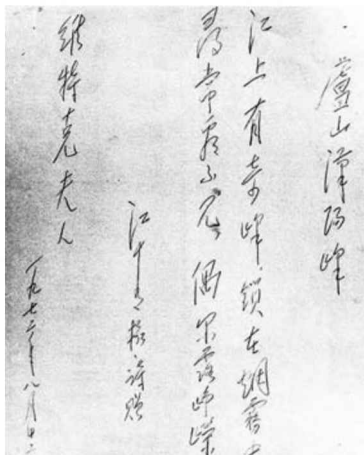 廬山漢陽峰
江上有奇峰 鎖在烟霧中
尋常看不見 偶尔露崢嶸
江青 詩贈
維特克夫人
一九七二年八月十二